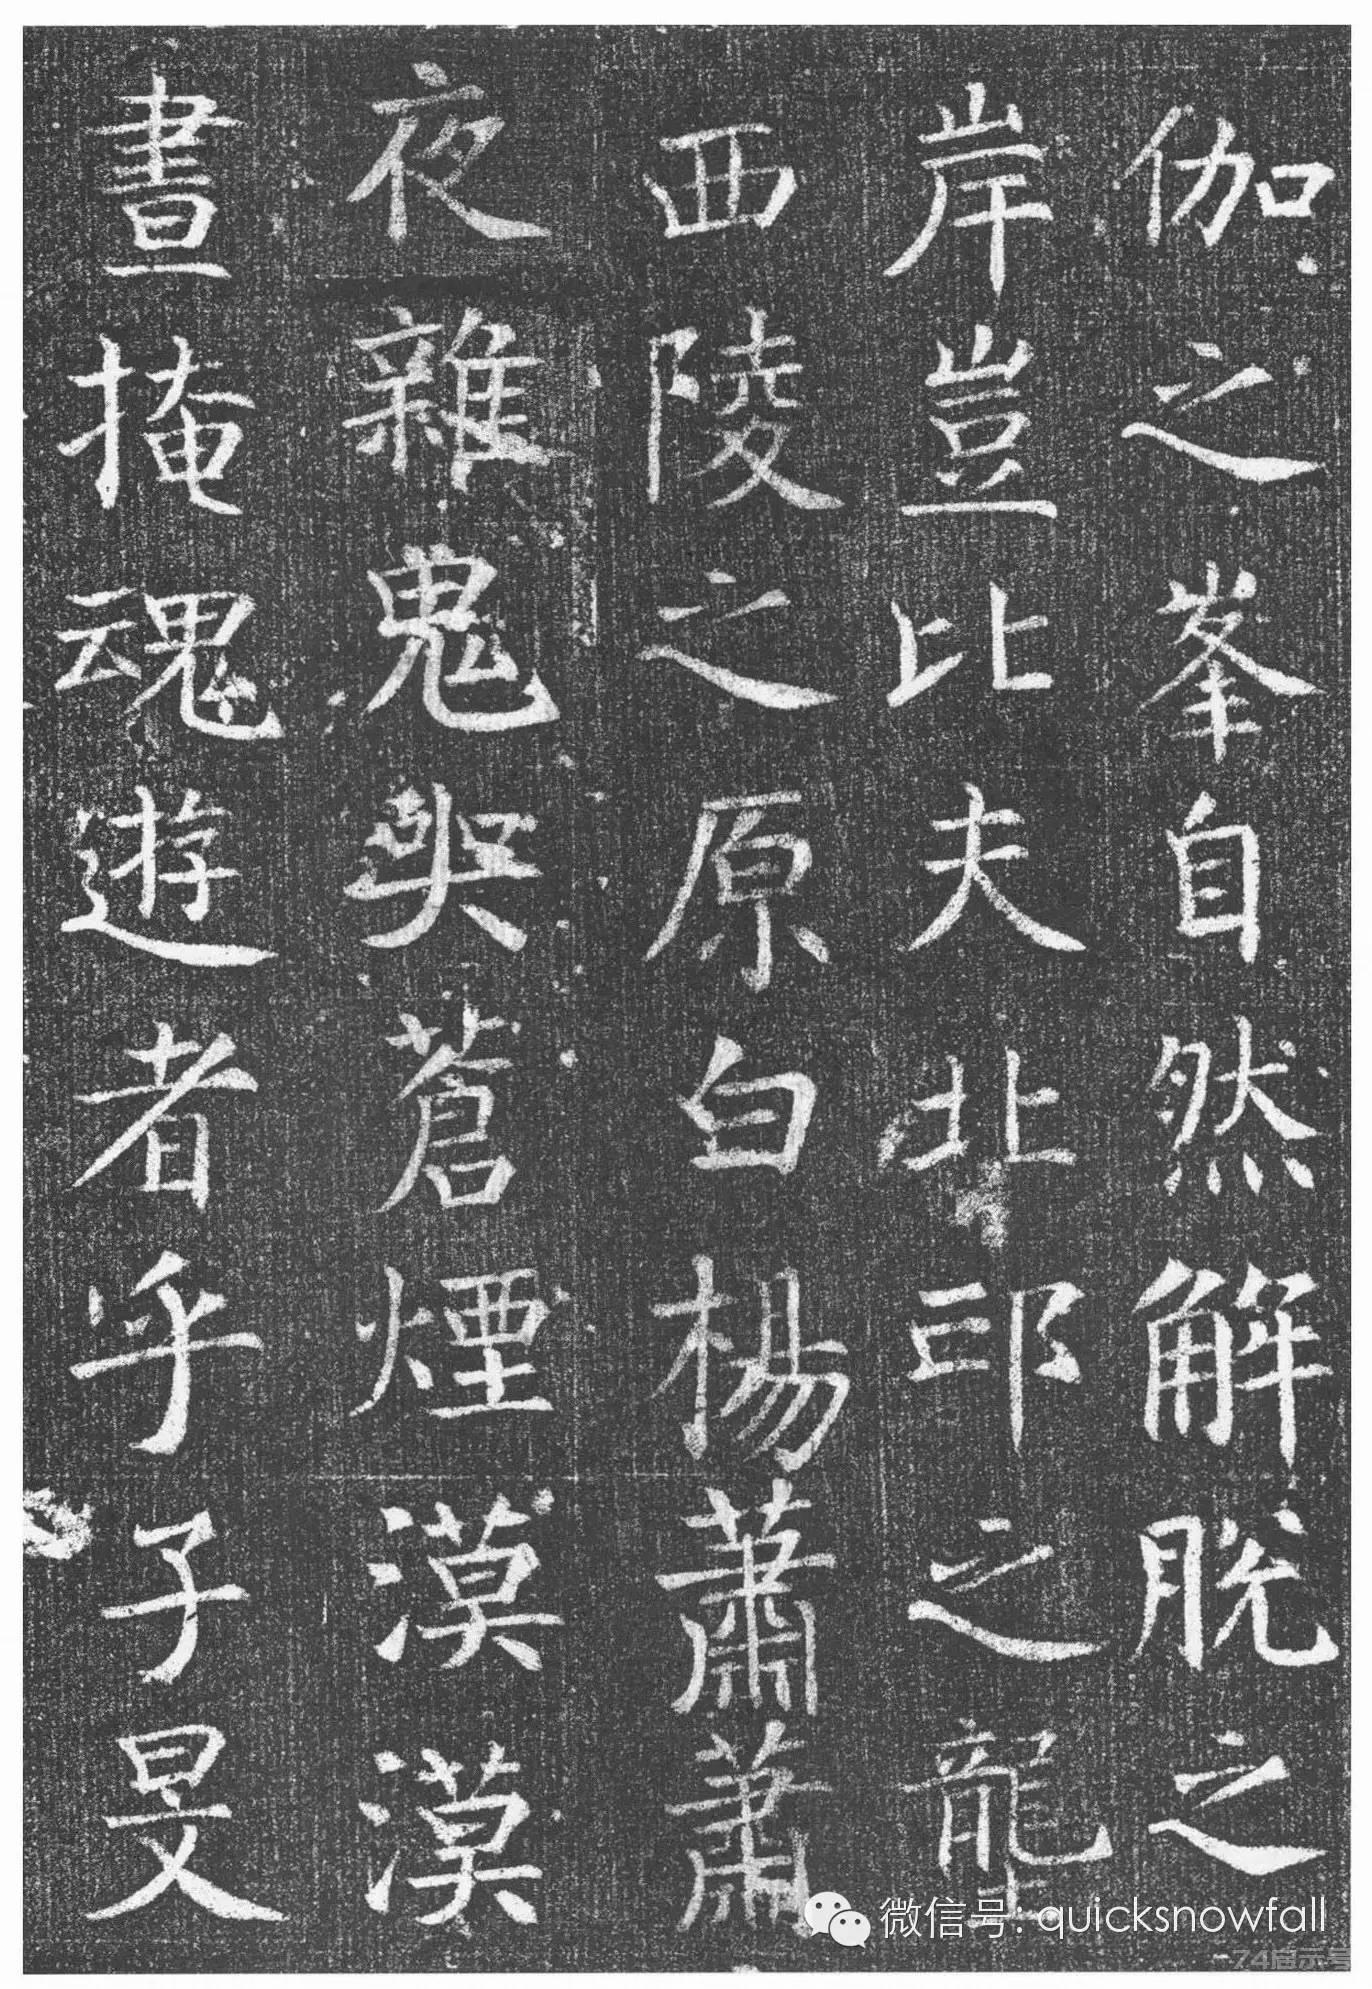 伽之峯自然解脫之
岸豈比夫北邙之壟
西陵之原白楊蕭蕭
夜雜鬼哭蒼煙漠漠
晝掩魂遊者乎子旻
微信号: quicksnowfall